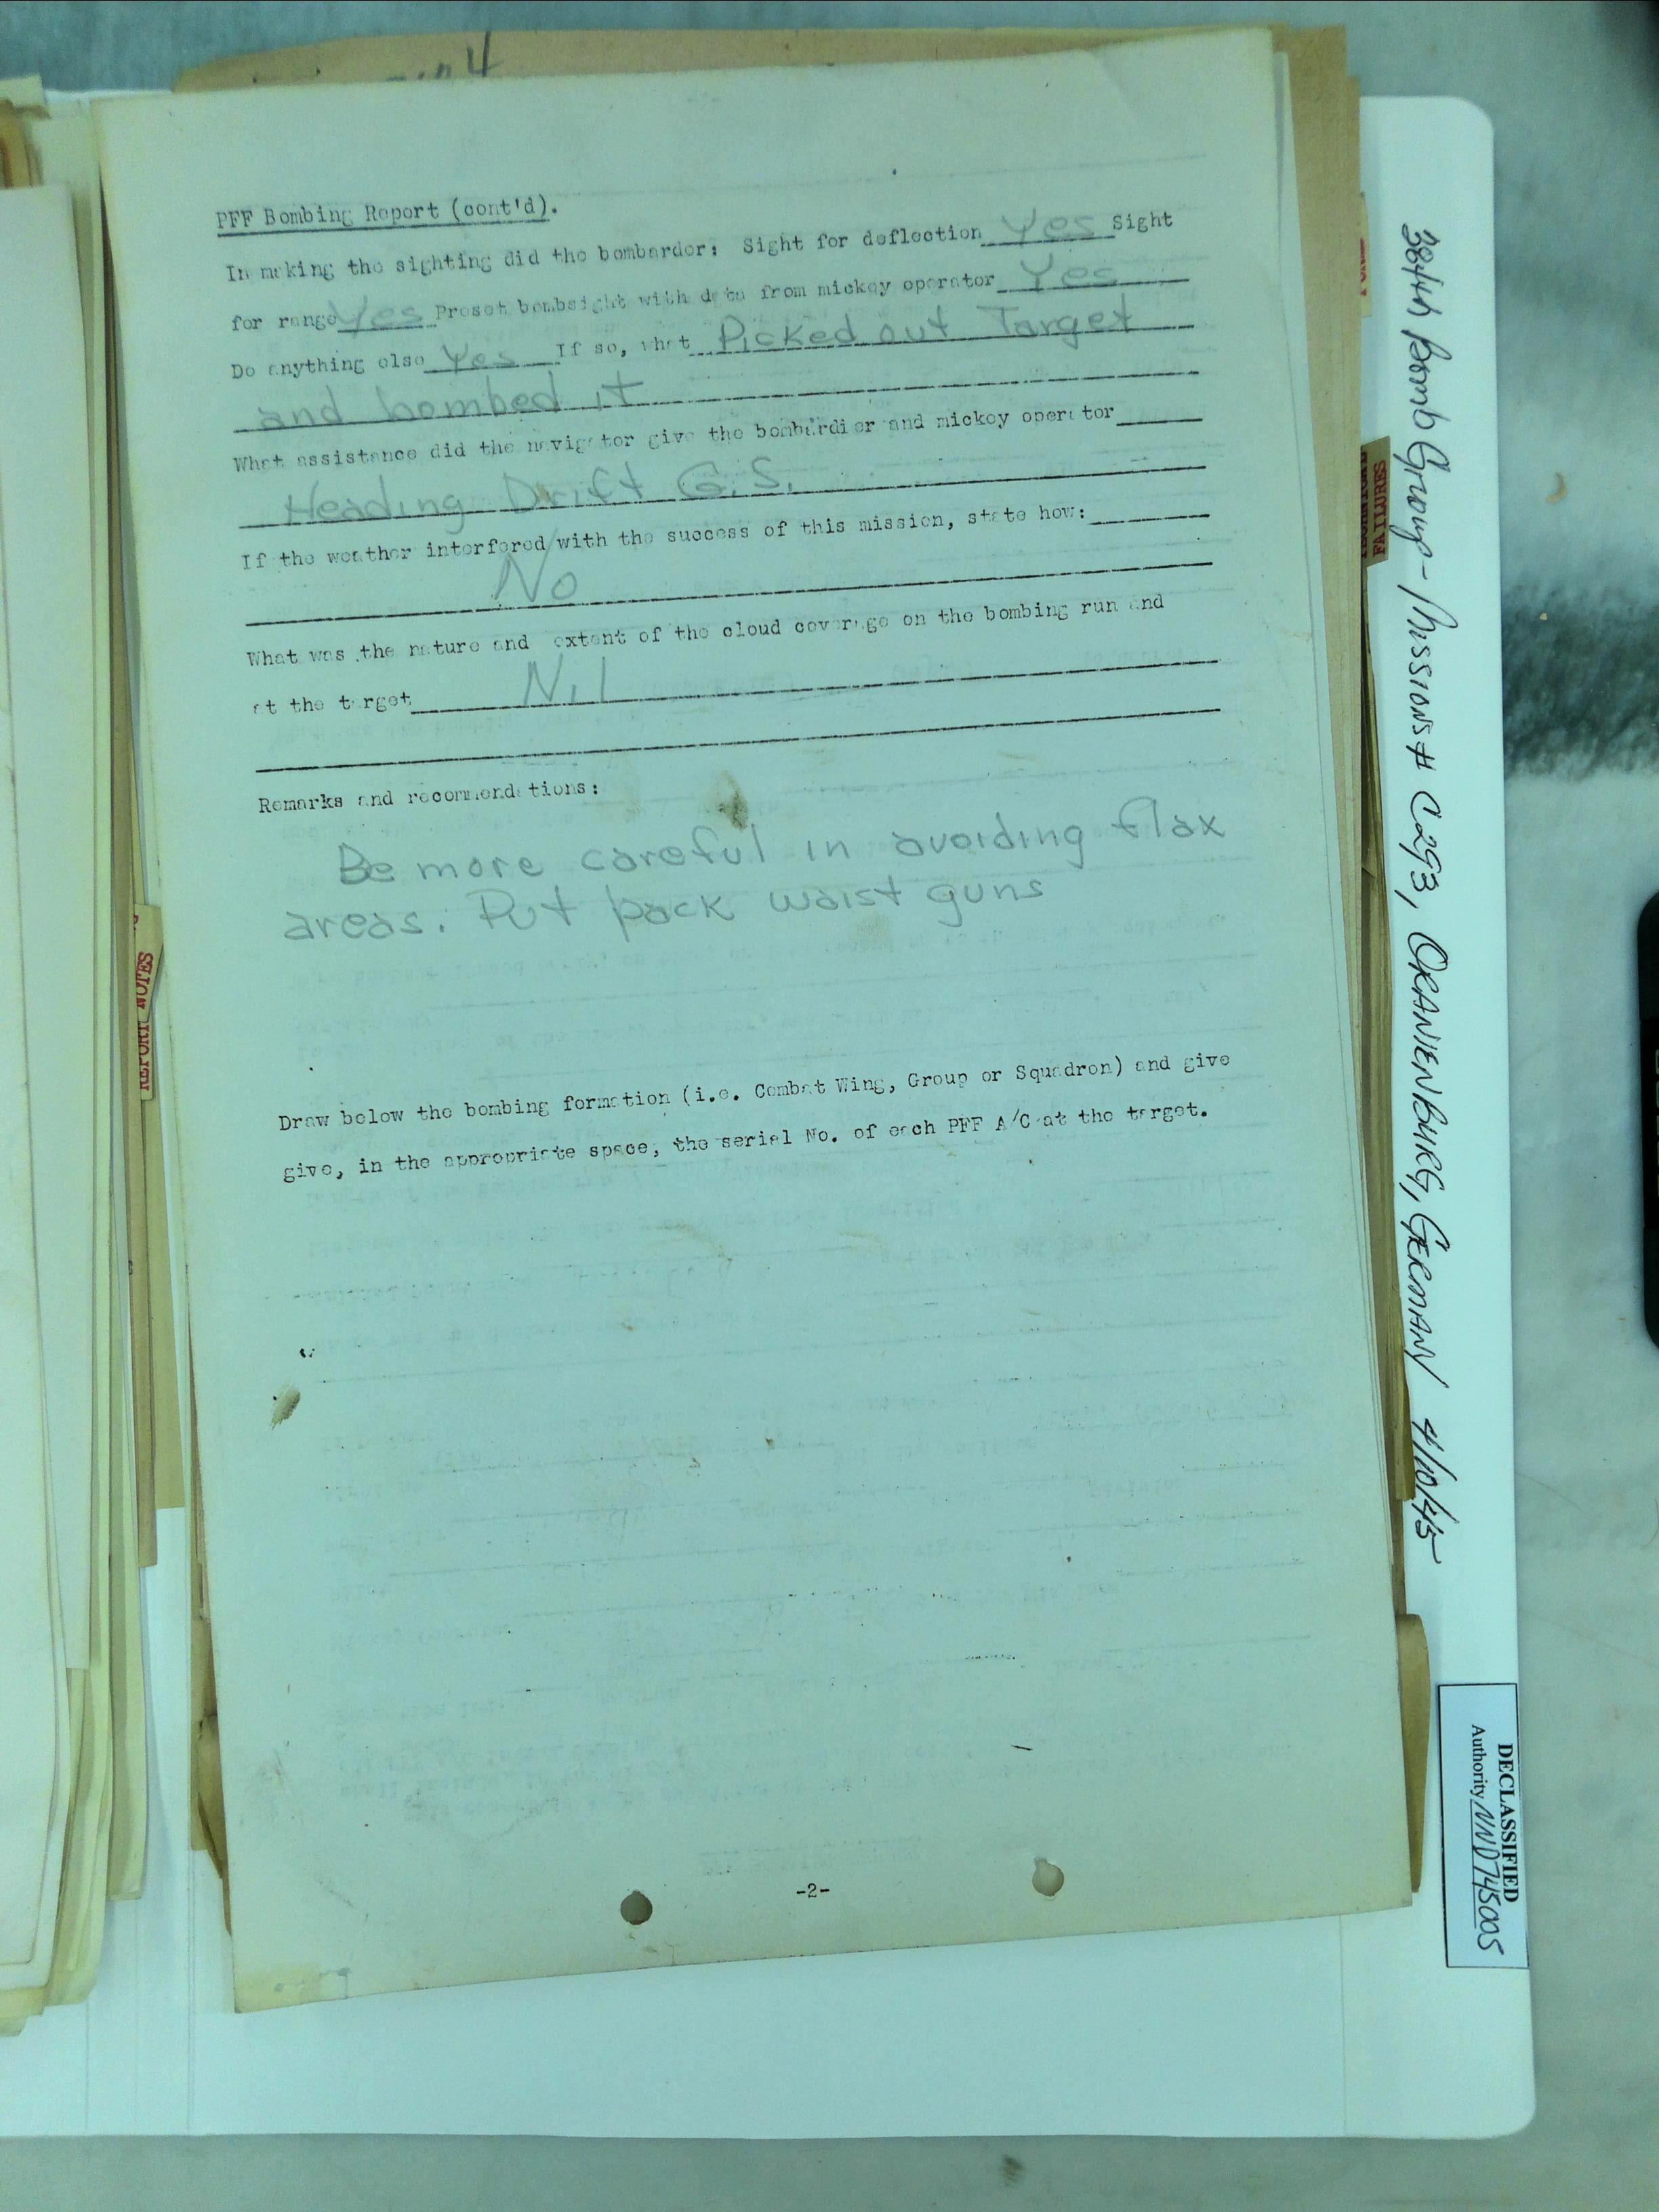 PFF Bombing Report (cont'd).
In making the sighting did the bombarder: Sight for deflection Yes Sight
for range Yes Preset bombsight with data from mickey operator Yes
Do anything else Yes If so, what Picked out Target
and bombed it
What assistance did the navigator give the bombardier and mickey operator
Heading Drift G.S.
If the weather interfered with the success of this mission, state how:
No
What was the nature and extent of the cloud coverage on the bombing run and
at the target Nil
Remarks and recommendations:
Be more careful in avoiding flax
areas. Put back waist guns
Draw below the bombing formation (i.e. Combat Wing, Group or Squadron) and give
give, in the appropriate space, the serial No. of each PFF A/C at the target.
-2-
REPORT NOTES
FAILURES
384th Bomb Group - Missions # C293, ORANIENBURG, GERMANY 4/10/45
DECLASSIFIED
Authority NND745005